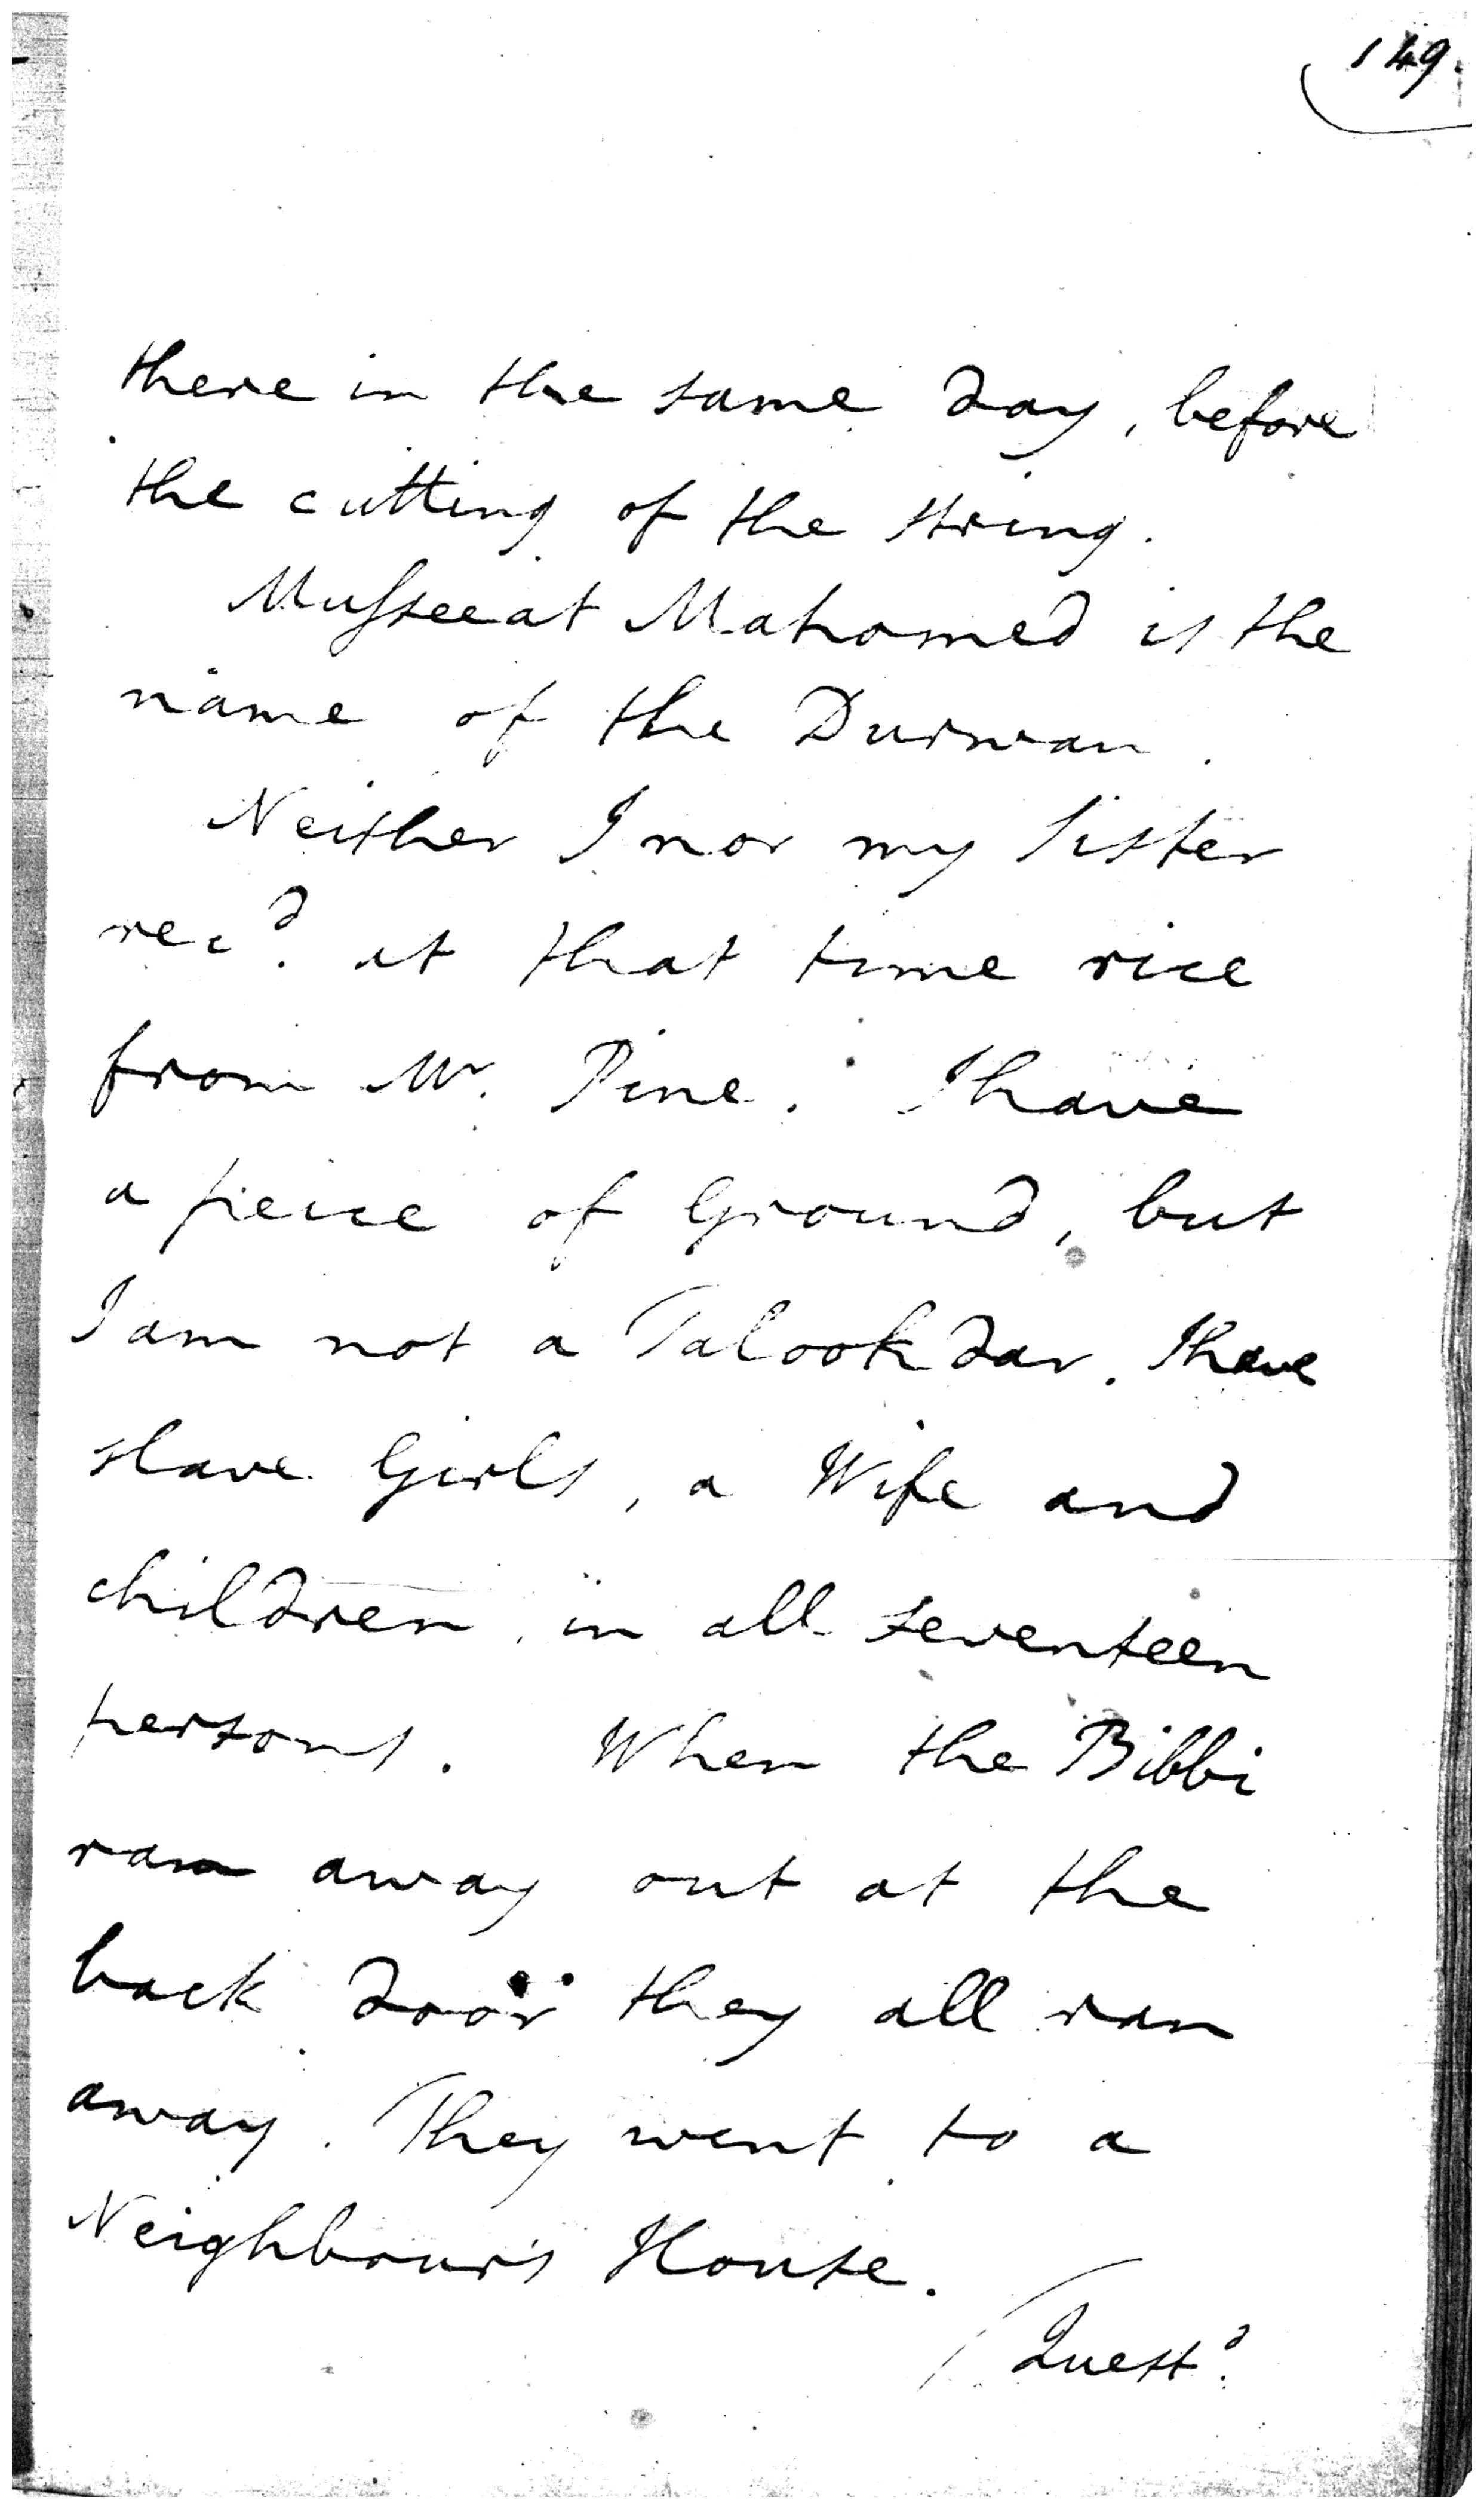 149.
there in the same day, before
the cutting of the string.
Musseeat Mahomed is the
name of the Durwan.
Neither I nor my Sister
rec.d at that time rice
from Mr. Pine. I have
a peice of Ground, but
I am not a Talookdar. I have
slave Girls, a Wife and
children, in all seventeen
persons. When the Bibbi
ran away out at the
back door they all ran
away. They went to a
Neighbour's House.
Quest.d